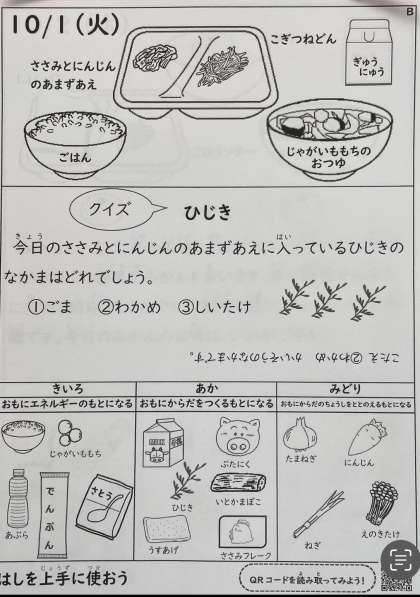 B
10/1(火)
こぎつねどん
ぎゅう
にゅう
ささみとにんじん
のあまずあえ
ごはん
じゃがいももちの
おつゆ
クイズ
ひじき
きょう
はい
今日のささみとにんじんのあまずあえに入っているひじきの
なかまはどれでしょう。
①ごま ②わかめ ③しいたけ
こたえ ②わかめ かいそうのなかまです。
きいろ
おもにエネルギーのもとになる
じゃがいももち
あぶら
でんぷん
さとう
あか
おもにからだをつくるもとになる
ぶたにく
ひじき
いとかまぼこ
うすあげ
ささみフレーク
みどり
おもにからだのちょうしをととのえるもとになる
たまねぎ
にんじん
ねぎ
えのきたけ
じょうず
つか
はしを上手に使おう
よ
と
QRコードを読み取ってみよう!